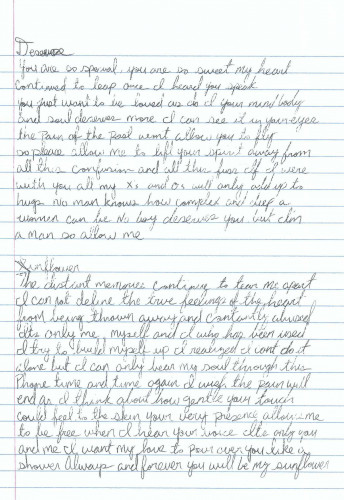 Deserve
You are so special, you are so sweet my heart
continued to leap once I heard you speak
you just want to be loved as do I your mind body
and soul deserves more I can see it in your eyes
the pain of the past wont allow you to fly
so please allow me to lift your spirit away from
all this confusion and all this fuss If I were
with you all my X's and O's will only add up to
hugs no man knows how complex and deep a
women can be No boy deserves you but I'm
a man so allow me
Sunflower
The distant memories continue to tear me apart
I can not define the true feelings of the heart
from being thrown away and constantly abused
Its only me, myself and I who has been used
I try to build myself up i realized i cant do it
alone but I can only hear my soul through this
Phone time and time again I wish the pain will
end as I think about how gentle your touch
could feel to the skin your very presence allows me
to be free when I hear your voice Its only you
and me I want my love to pour over you like a
shower Always and forever you will be my sunflower